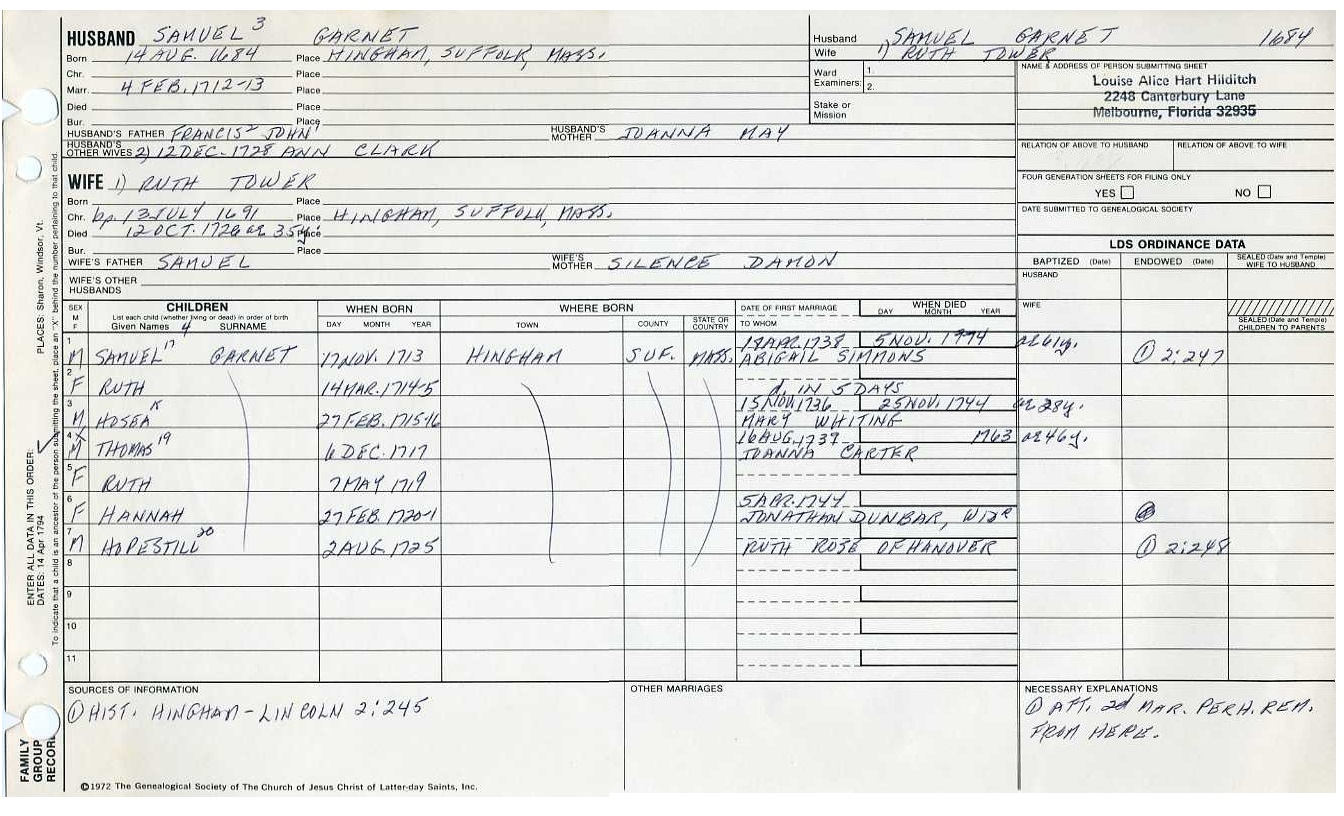 HUSBAND SAMUEL 3 GARNET
Born 14 AUG. 1684 Place HINGHAM, SUFFOLK, MASS.
Chr. Place
Marr. 4 FEB. 1712-13 Place
Died Place
Bur. Place
HUSBAND'S FATHER FRANCIS2 JOHN1 HUSBAND'S MOTHER JOANNA MAY
HUSBAND'S OTHER WIVES 2) 12 DEC. 1728 ANN CLARK
WIFE 1) RUTH TOWER
Born Place
Chr. bp. 13 JULY 1691 Place HINGHAM, SUFFOLK, MASS.
Died 12 OCT. 1726 ae 35y. Place
Bur. Place
WIFE'S FATHER SAMUEL WIFE'S MOTHER SILENCE DAMON
WIFE'S OTHER HUSBANDS
Husband SAMUEL GARNET 1684
Wife 1) RUTH TOWER
Ward Examiners: 1. 2.
Stake or Mission
NAME & ADDRESS OF PERSON SUBMITTING SHEET
Louise Alice Hart Hilditch
2248 Canterbury Lane
Melbourne, Florida 32935
RELATION OF ABOVE TO HUSBAND RELATION OF ABOVE TO WIFE
FOUR GENERATION SHEETS FOR FILING ONLY
YES NO
DATE SUBMITTED TO GENEALOGICAL SOCIETY
LDS ORDINANCE DATA
BAPTIZED (Date) ENDOWED (Date) SEALED (Date and Temple) WIFE TO HUSBAND
HUSBAND
WIFE
SEALED (Date and Temple) CHILDREN TO PARENTS
SEX M F CHILDREN WHEN BORN WHERE BORN DATE OF FIRST MARRIAGE WHEN DIED
List each child (whether living or dead) in order of birth
Given Names 4 SURNAME DAY MONTH YEAR TOWN COUNTY STATE OR COUNTRY TO WHOM DAY MONTH YEAR
1 18 APR. 1738 5 NOV. 1774 ae 61y.
M SAMUEL 17 GARNET 17 NOV. 1713 HINGHAM SUF. MASS. ABIGAIL SIMMONS ① 2:247
2
F RUTH 14 MAR. 1714-5 d. IN 5 DAYS
3 15 NOV. 1736 25 NOV. 1744 ae 28y.
M HOSEA X 27 FEB. 1715-16 MARY WHITING
4 X 16 AUG. 1739 1763 ae 46y.
M THOMAS 19 6 DEC. 1717 JOANNA CARTER
5
F RUTH 7 MAY 1719
6 5 APR. 1744
F HANNAH 27 FEB. 1720-1 JONATHAN DUNBAR, WIDR
7
M HOPESTILL 20 2 AUG. 1725 RUTH ROSE OF HANOVER ① 2:248
8
9
10
11
SOURCES OF INFORMATION
① HIST. HINGHAM-LINCOLN 2:245
OTHER MARRIAGES
NECESSARY EXPLANATIONS
① AFT. 2d MAR. PERH. REM.
FROM HERE.
©1972 The Genealogical Society of The Church of Jesus Christ of Latter-day Saints, Inc.
FAMILY GROUP RECORD
ENTER ALL DATA IN THIS ORDER:
DATES: 14 Apr 1794 PLACES: Sharon, Windsor, Vt.
To indicate that a child is an ancestor of the person submitting the sheet, place an "X" behind the number pertaining to that child.